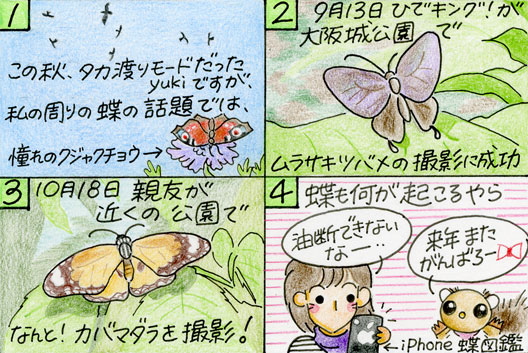 1
この秋、タカ渡りモードだった
yukiですが、
私の周りの蝶の話題では、
憧れのクジャクチョウ→
2
9月13日 ひでキング!が
大阪城公園で
ムラサキツバメの撮影に成功
3
10月18日 親友が
近くの公園で
なんと!カバマダラを撮影!
4
蝶も何が起こるやら
油断できない
なー…
来年また
がんばろー
←iPhone 蝶図鑑